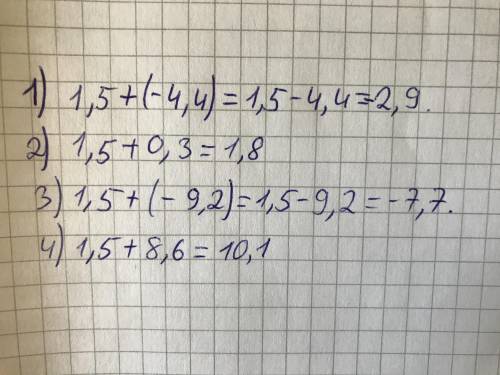 1) 1,5+(-4,4)=1,5-4,4=-2,9.
2) 1,5+0,3=1,8
3) 1,5+(-9,2)=1,5-9,2=-7,7.
4) 1,5+8,6=10,1